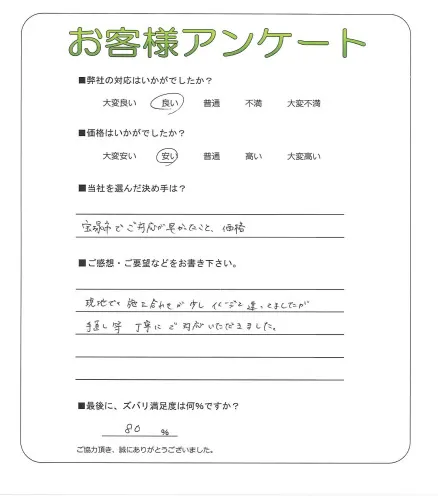 お客様アンケート
■弊社の対応はいかがでしたか？
大変良い 良い 普通 不満 大変不満
■価格はいかがでしたか？
大変安い 安い 普通 高い 大変高い
■当社を選んだ決め手は？
宝塚市でご対応が早かったこと、価格
■ご感想・ご要望などをお書き下さい。
現地での施工合わせが少しイメージと違ってましたが
手直し等 丁寧にご対応いただきました。
■最後に、ズバリ満足度は何％ですか？
80 %
ご協力頂き、誠にありがとうございました。